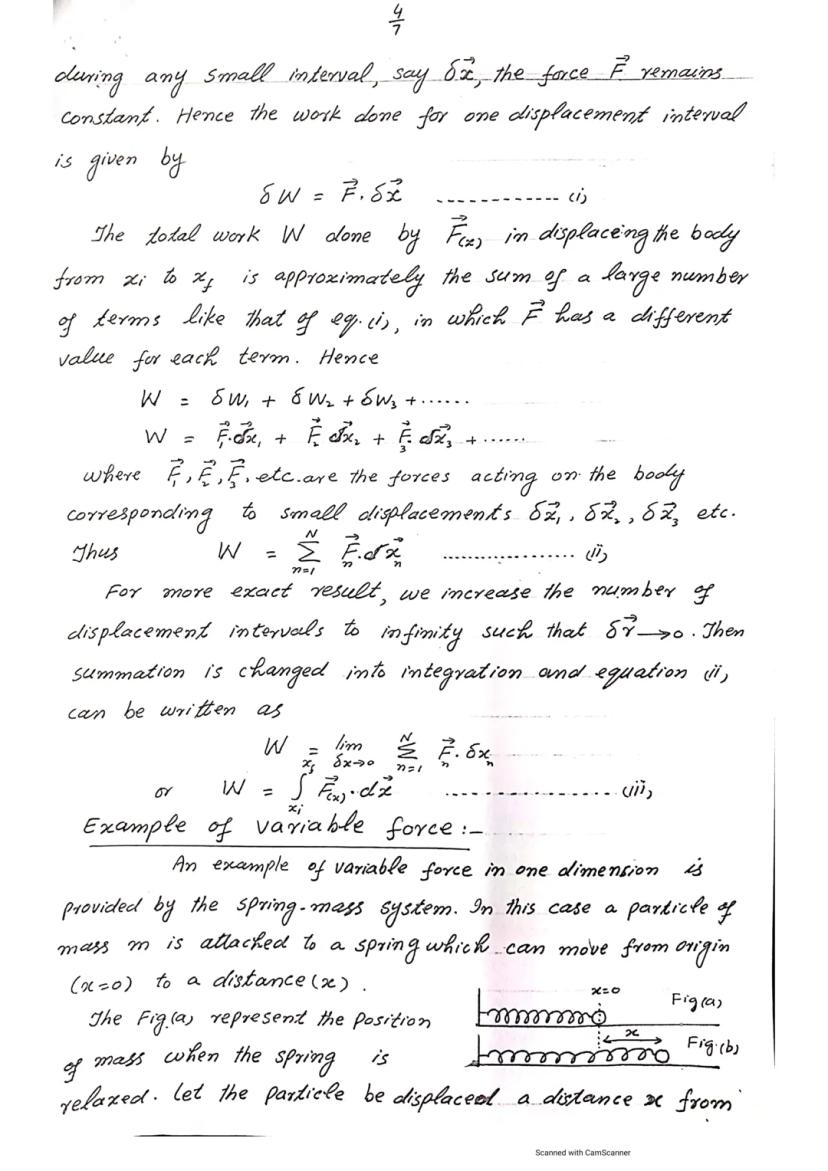 4/7
during any small interval, say δx⃗, the force F⃗ remains
constant. Hence the work done for one displacement interval
is given by
δW = F⃗. δx⃗ ------------ (i)
The total work W done by F⃗(x) in displaceing the body
from xi to xf is approximately the sum of a large number
of terms like that of eq.(i), in which F⃗ has a different
value for each term. Hence
W = δW₁ + δW₂ + δW₃ + ......
W = F⃗₁.δx⃗₁ + F⃗₂ δx⃗₂ + F⃗₃. δx⃗₃ + ......
where F⃗₁, F⃗₂, F⃗₃, etc. are the forces acting on the body
corresponding to small displacements δx⃗₁, δx⃗₂, δx⃗₃ etc.
Thus W = Σ_{n=1}^{N} F⃗n.δx⃗n .................. (ii)
For more exact result, we increase the number of
displacement intervals to infinity such that δr⃗ → 0. Then
summation is changed into integration and equation (ii)
can be written as
W = lim_{δx→0} Σ_{n=1}^{N} F⃗n. δxn
or W = ∫_{xi}^{xf} F⃗(x).dx⃗ .................. (iii)
Example of variable force :-
An example of variable force in one dimension is
provided by the spring-mass system. In this case a particle of
mass m is attached to a spring which can move from origin
(x=0) to a distance (x).
x=0
Fig(a)
The Fig.(a) represent the position
x
Fig.(b)
of mass when the spring is
relaxed. Let the particle be displaced a distance x from
Scanned with CamScanner